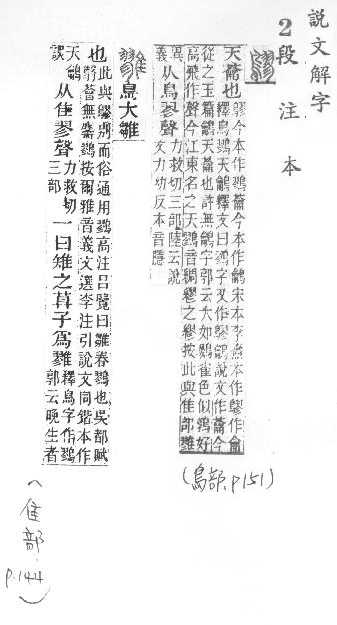 說文解字
2段注本
天蘥也
釋鳥鷚天鸙釋文曰鷚字又作鷚鸙說文作蘥今
從之玉篇鸙天蘥也許無鸙字郭云大如鷃雀色似鶉好
高飛作聲今江東名之天鷚音綢繆之繆按此與隹部雡
異
義
从鳥翏聲
力救切三部陸云說
文力幼反本音隱
(鳥部,p151)
鳥大雛
也
此與鷚別而俗通用鷚高注呂覽曰雛春鷚也吳都賦
翳薈無麢鷚按爾雅音義文選李注引說文同鍇本作
天鸙
誤
从隹翏聲
力救切
三部
一曰雉之莫子爲雡
釋鳥字作鷚
郭云晚生者
(隹部p.144)